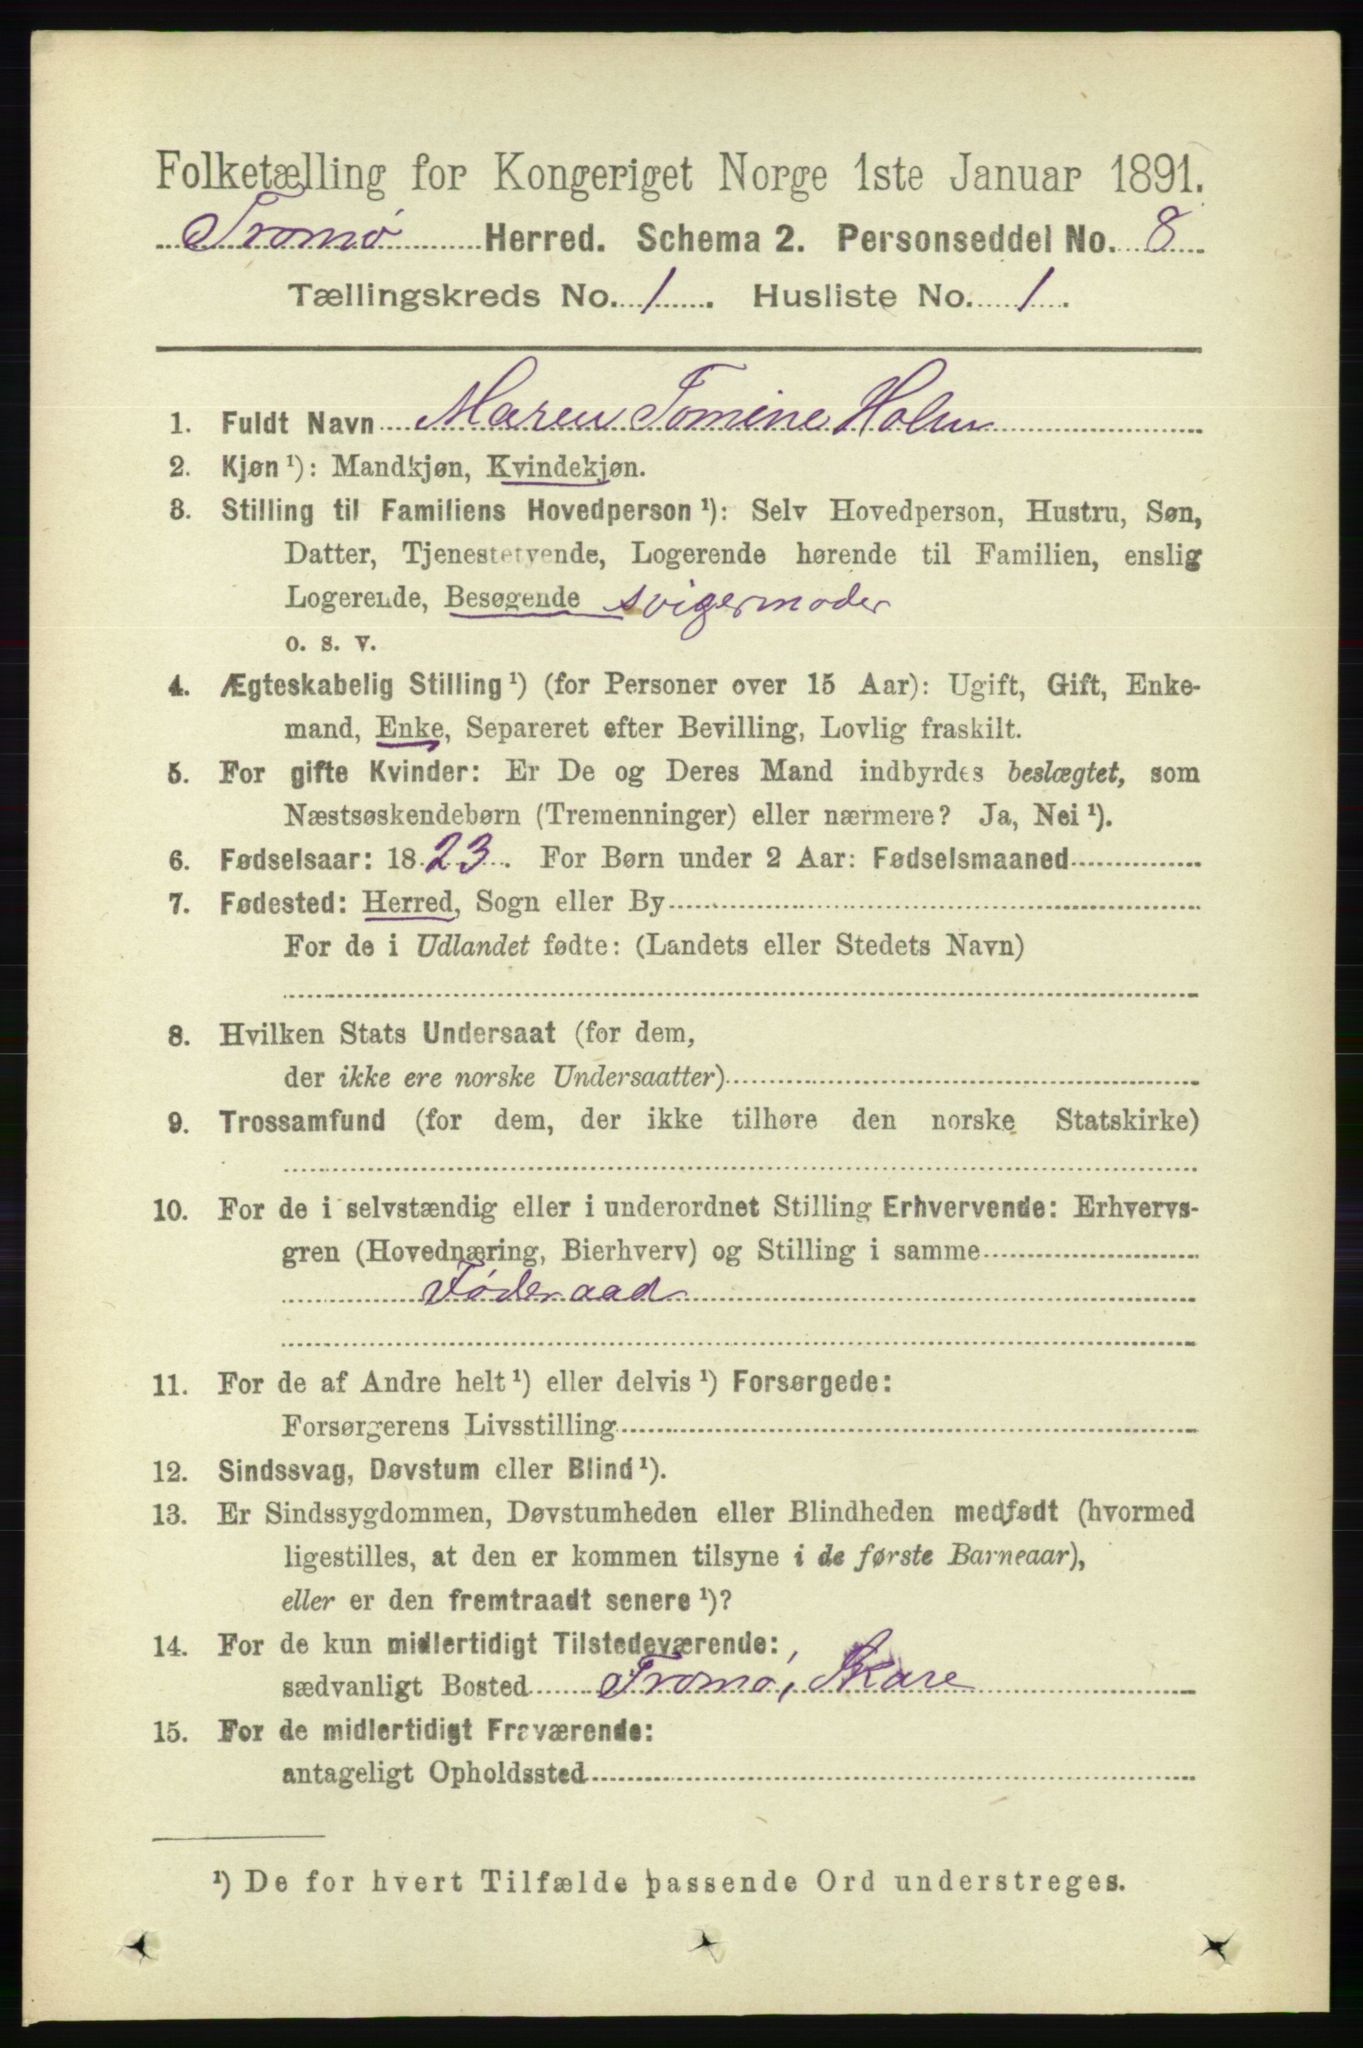 Folketælling for Kongeriget Norge 1ste Januar 1891.
Tromø Herred. Schema 2. Personseddel No. 8
Tællingskreds No. 1. Husliste No. 1.
1. Fuldt Navn Maren Tomine Holm
2. Kjøn ¹): Mandkjøn, Kvindekjøn.
3. Stilling til Familiens Hovedperson ¹): Selv Hovedperson, Hustru, Søn,
Datter, Tjenestetyende, Logerende hørende til Familien, enslig
Logerende, Besøgende svigermoder
o. s. v.
4. Ægteskabelig Stilling ¹) (for Personer over 15 Aar): Ugift, Gift, Enke-
mand, Enke, Separeret efter Bevilling, Lovlig fraskilt.
5. For gifte Kvinder: Er De og Deres Mand indbyrdes beslægtet, som
Næstsøskendebørn (Tremenninger) eller nærmere? Ja, Nei ¹).
6. Fødselsaar: 1823. For Børn under 2 Aar: Fødselsmaaned
7. Fødested: Herred, Sogn eller By
For de i Udlandet fødte: (Landets eller Stedets Navn)
8. Hvilken Stats Undersaat (for dem,
der ikke ere norske Undersaatter)
9. Trossamfund (for dem, der ikke tilhøre den norske Statskirke)
10. For de i selvstændig eller i underordnet Stilling Erhvervende: Erhvervs-
gren (Hovednæring, Bierhverv) og Stilling i samme
Føderaad
11. For de af Andre helt ¹) eller delvis ¹) Forsørgede:
Forsørgerens Livsstilling
12. Sindssvag, Døvstum eller Blind ¹).
13. Er Sindssygdommen, Døvstumheden eller Blindheden medfødt (hvormed
ligestilles, at den er kommen tilsyne i de første Barneaar),
eller er den fremtraadt senere ¹)?
14. For de kun midlertidigt Tilstedeværende:
sædvanligt Bosted Tromø, Skare
15. For de midlertidigt Fraværende:
antageligt Opholdssted
¹) De for hvert Tilfælde passende Ord understreges.